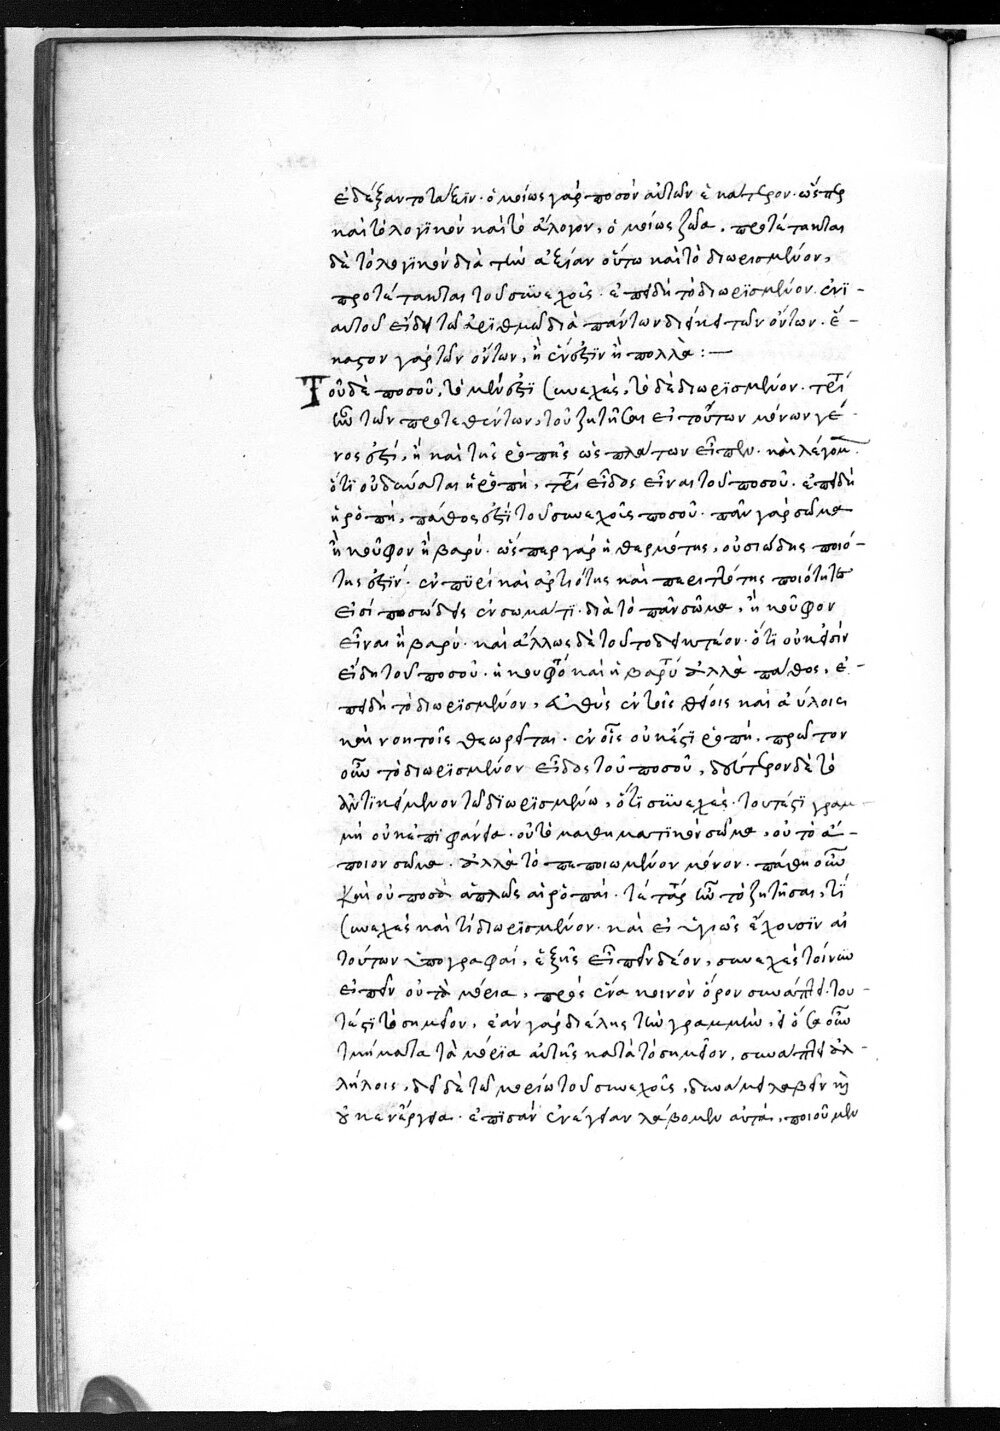 ἐδέξαντο τάξιν· ὁμοίως γὰρ ποσὸν αὐτῶν ἑκάτερον· ὥσπερ
καὶ τὸ λογικὸν καὶ τὸ ἄλογον, ὁμοίως ζῶα, προτέτακται
δὲ τὸ λογικὸν διὰ τὴν ἀξίαν οὕτω καὶ τὸ διωρισμένον,
προτέτακται τοῦ συνεχοῦς· ἐπειδὴ τὸ διωρισμένον ἑνϊ-
αυτοῦ εἴδει τῶ ἀριθμῶ διὰ πάντων διήκει τῶν ὄντων· ἕ-
καστον γὰρ τῶν ὄντων, ἢ ἕν ἐστιν ἢ πολλά:—
Τοῦ δὲ ποσοῦ, τὸ μέν ἐστι συνεχὲς, τὸ δὲ διωρισμένον· τρί
τῶν προτεθέντων, τοῦ ζητῆσαι εἰ τούτων μόνων γέ-
νος ἐστὶ, ἢ καὶ τῆς ῥοπῆς ὡς πλάτων εἶπεν· καὶ λέγομ
ὅτι οὐ δύναται ἡ ῥοπὴ, τρί εἶδος εἶναι τοῦ ποσοῦ· ἐπειδὴ
ἡ ῥοπὴ, πάθος ἐστὶ τοῦ συνεχοῦς ποσοῦ· πᾶν γὰρ σῶμα
ἢ κοῦφον ἢ βαρύ· ὥσπερ γὰρ ἡ θερμότης, οὐσιώδης ποιό-
της ἐστὶν· ἐν πυρὶ καὶ ἀρτιότης καὶ περιττότης ποιότητες
εἰσὶ ποσώδεις ἐν σώματι· διὰ τὸ πᾶν σῶμα, ἢ κοῦφον
εἶναι ἢ βαρύ· καὶ ἄλλως δὲ τοῦτο δεικτέον· ὅτι οὐκ εἰσὶν
εἴδη τοῦ ποσοῦ· ἡ κουφό καὶ ἡ βαρύ ἀλλὰ πάθος, ἐ-
πειδὴ τὸ διωρισμένον, εὐθὺς ἐν τοῖς θείοις καὶ ἀΰλοις
καὶ νοητοῖς θεωρεῖται· ἐν οἷς οὐκ ἔστι ῥοπὴ, πρῶτον
οὖν τὸ διωρισμένον εἶδος τοῦ ποσοῦ, δεύτερον δὲ τὸ
ἀντικείμενον τῶ διωρισμένω, ὅτι συνεχὲς· τουτέστι γραμ-
μὴ οὐκ ἐπιφάνεια· οὔτε μαθηματικὸν σῶμα, οὐ τὸ ἄ-
ποιον σῶμα· ἀλλὰ τὸ πεποιωμένον μόνον· πάθη οὖν
καὶ οὐ ποσὰ ἁπλῶς αἱ ῥοπαί· τὸ ζητῆσαι, τί
συνεχὲς καὶ τί διωρισμένον· καὶ εἰ ὑγιῶς ἔχουσιν αἱ
τούτων ὑπογραφαί, ἑξῆς εἰπεῖν δέον, συνεχὲς τοίνυν
εἰπεῖν οὗ τὰ μόρια, πρὸς ἕνα κοινὸν ὅρον συνάπτει· του-
τέστι τὸ σημεῖον, ἐὰν γὰρ διέλης τὴν γραμμὴν, οὖν
τμήματα τὰ μόρια αὐτῆς κατὰ τὸ σημεῖον, συνάπτει ἀλ-
λήλοις, δεῖ δὲ τῶ μορίω τοῦ συνεχοῦς, δυνάμει λαβεῖν καὶ
οὐκ ἐνέργεια· ἐπὶ σὰν ἐνεργείαν λάβομεν αὐτὰ, ποιοῦμεν